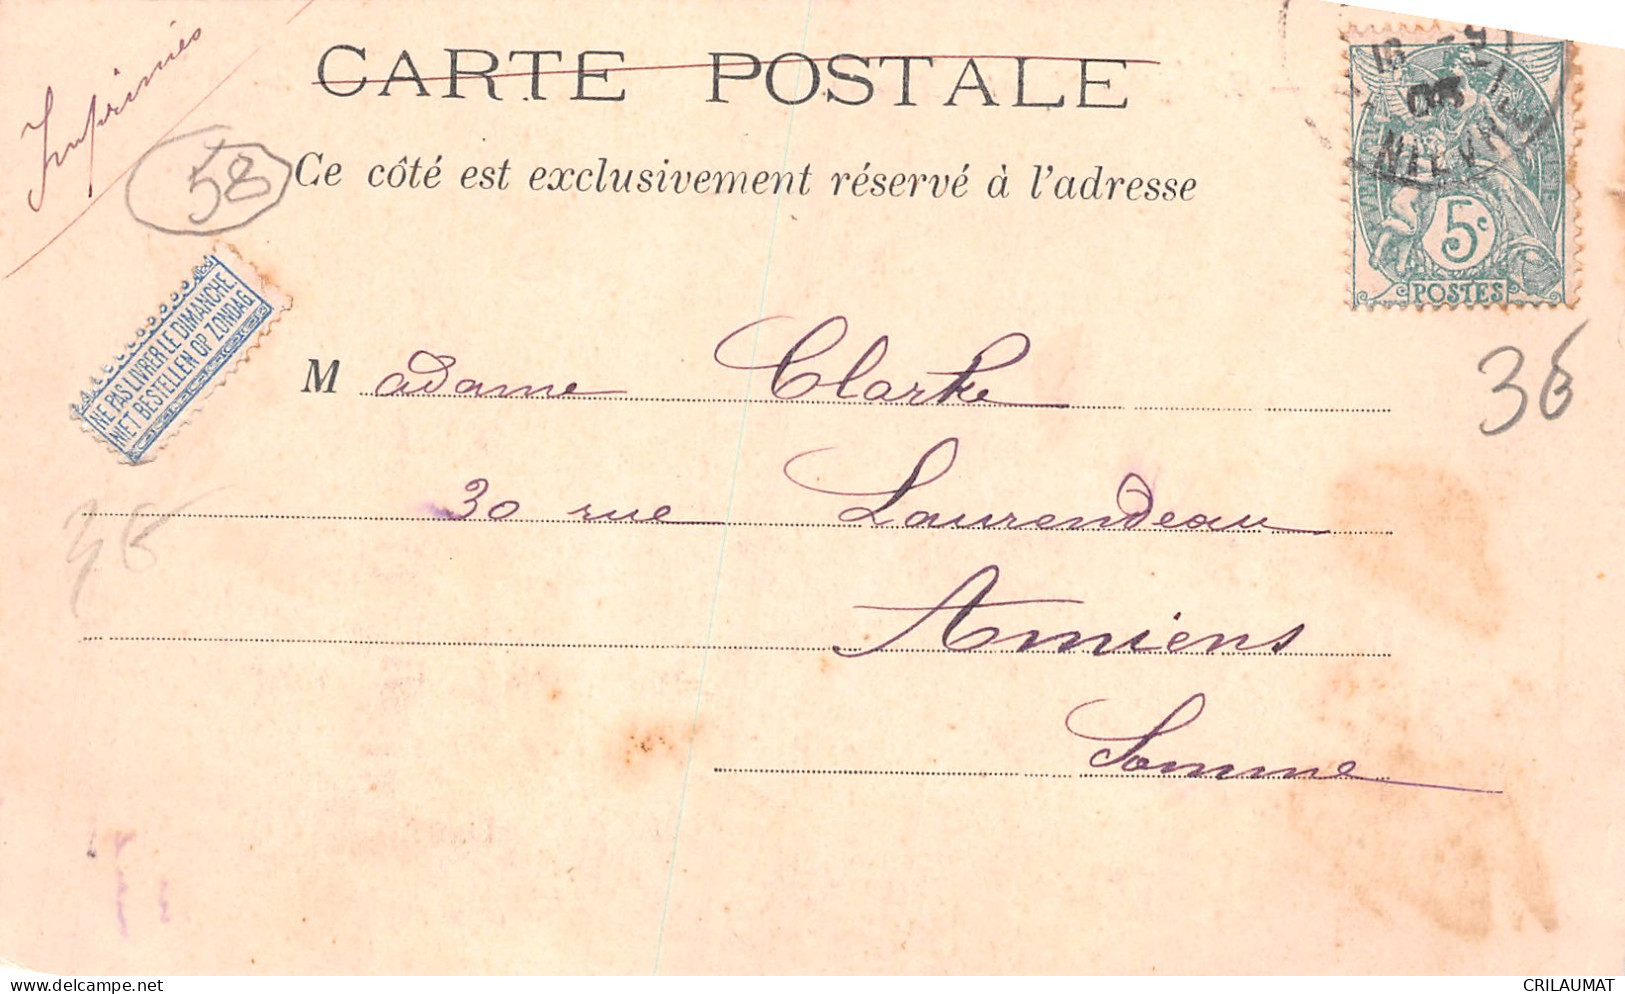 Imprimés
CARTE POSTALE
58
Ce côté est exclusivement réservé à l'adresse
NIEVRE
5c
POSTES
NE PAS LIVRER LE DIMANCHE
NIET BESTELLEN OP ZONDAG
Madame Clarke
36
30 rue Laurendeau
Amiens
Somme
www.delcampe.net
CRILAUMAT